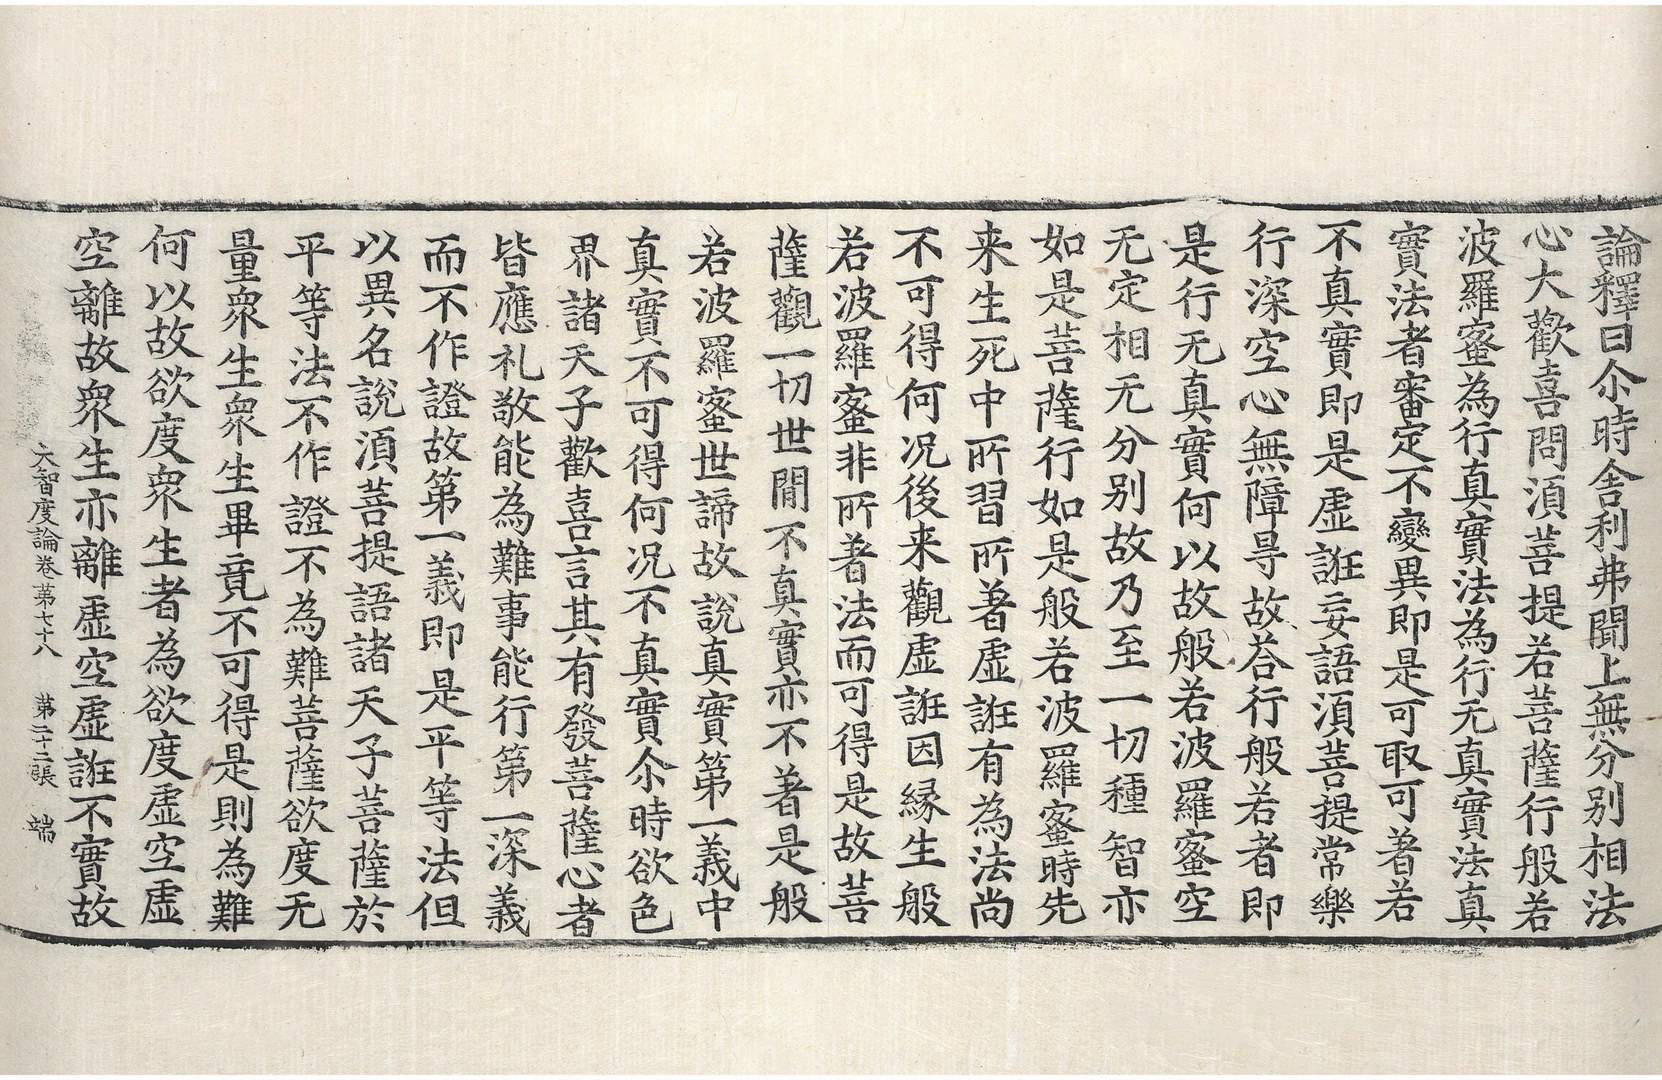 論釋曰尒時舍利弗聞上無分别相法
心大歡喜問湏菩提若菩薩行般若
波羅蜜為行真實法為行无真實法真
實法者審定不變異即是可取可著若
不真實即是虛誑妄語湏菩提常樂
行深空心無障㝵故荅行般若者即
是行无真實何以故般若波羅蜜空
无定相无分别故乃至一切種智亦
如是菩薩行如是般若波羅蜜時先
来生死中所習所著虛誑有為法尚
不可得何况後来觀虛誑因緣生般
若波羅蜜非所著法而可得是故菩
薩觀一切世間不真實亦不著是般
若波羅蜜世諦故說真實第一義中
真實不可得何况不真實尒時欲色
界諸天子歡喜言其有發菩薩心者
皆應礼敬能為難事能行第一深義
而不作證故第一義即是平等法但
以異名說湏菩提語諸天子菩薩於
平等法不作證不為難菩薩欲度无
量衆生衆生畢竟不可得是則為難
何以故欲度衆生者為欲度虛空虛
空離故衆生亦離虛空虛誑不實故
大智度論卷苐七十八 第二十二張 端